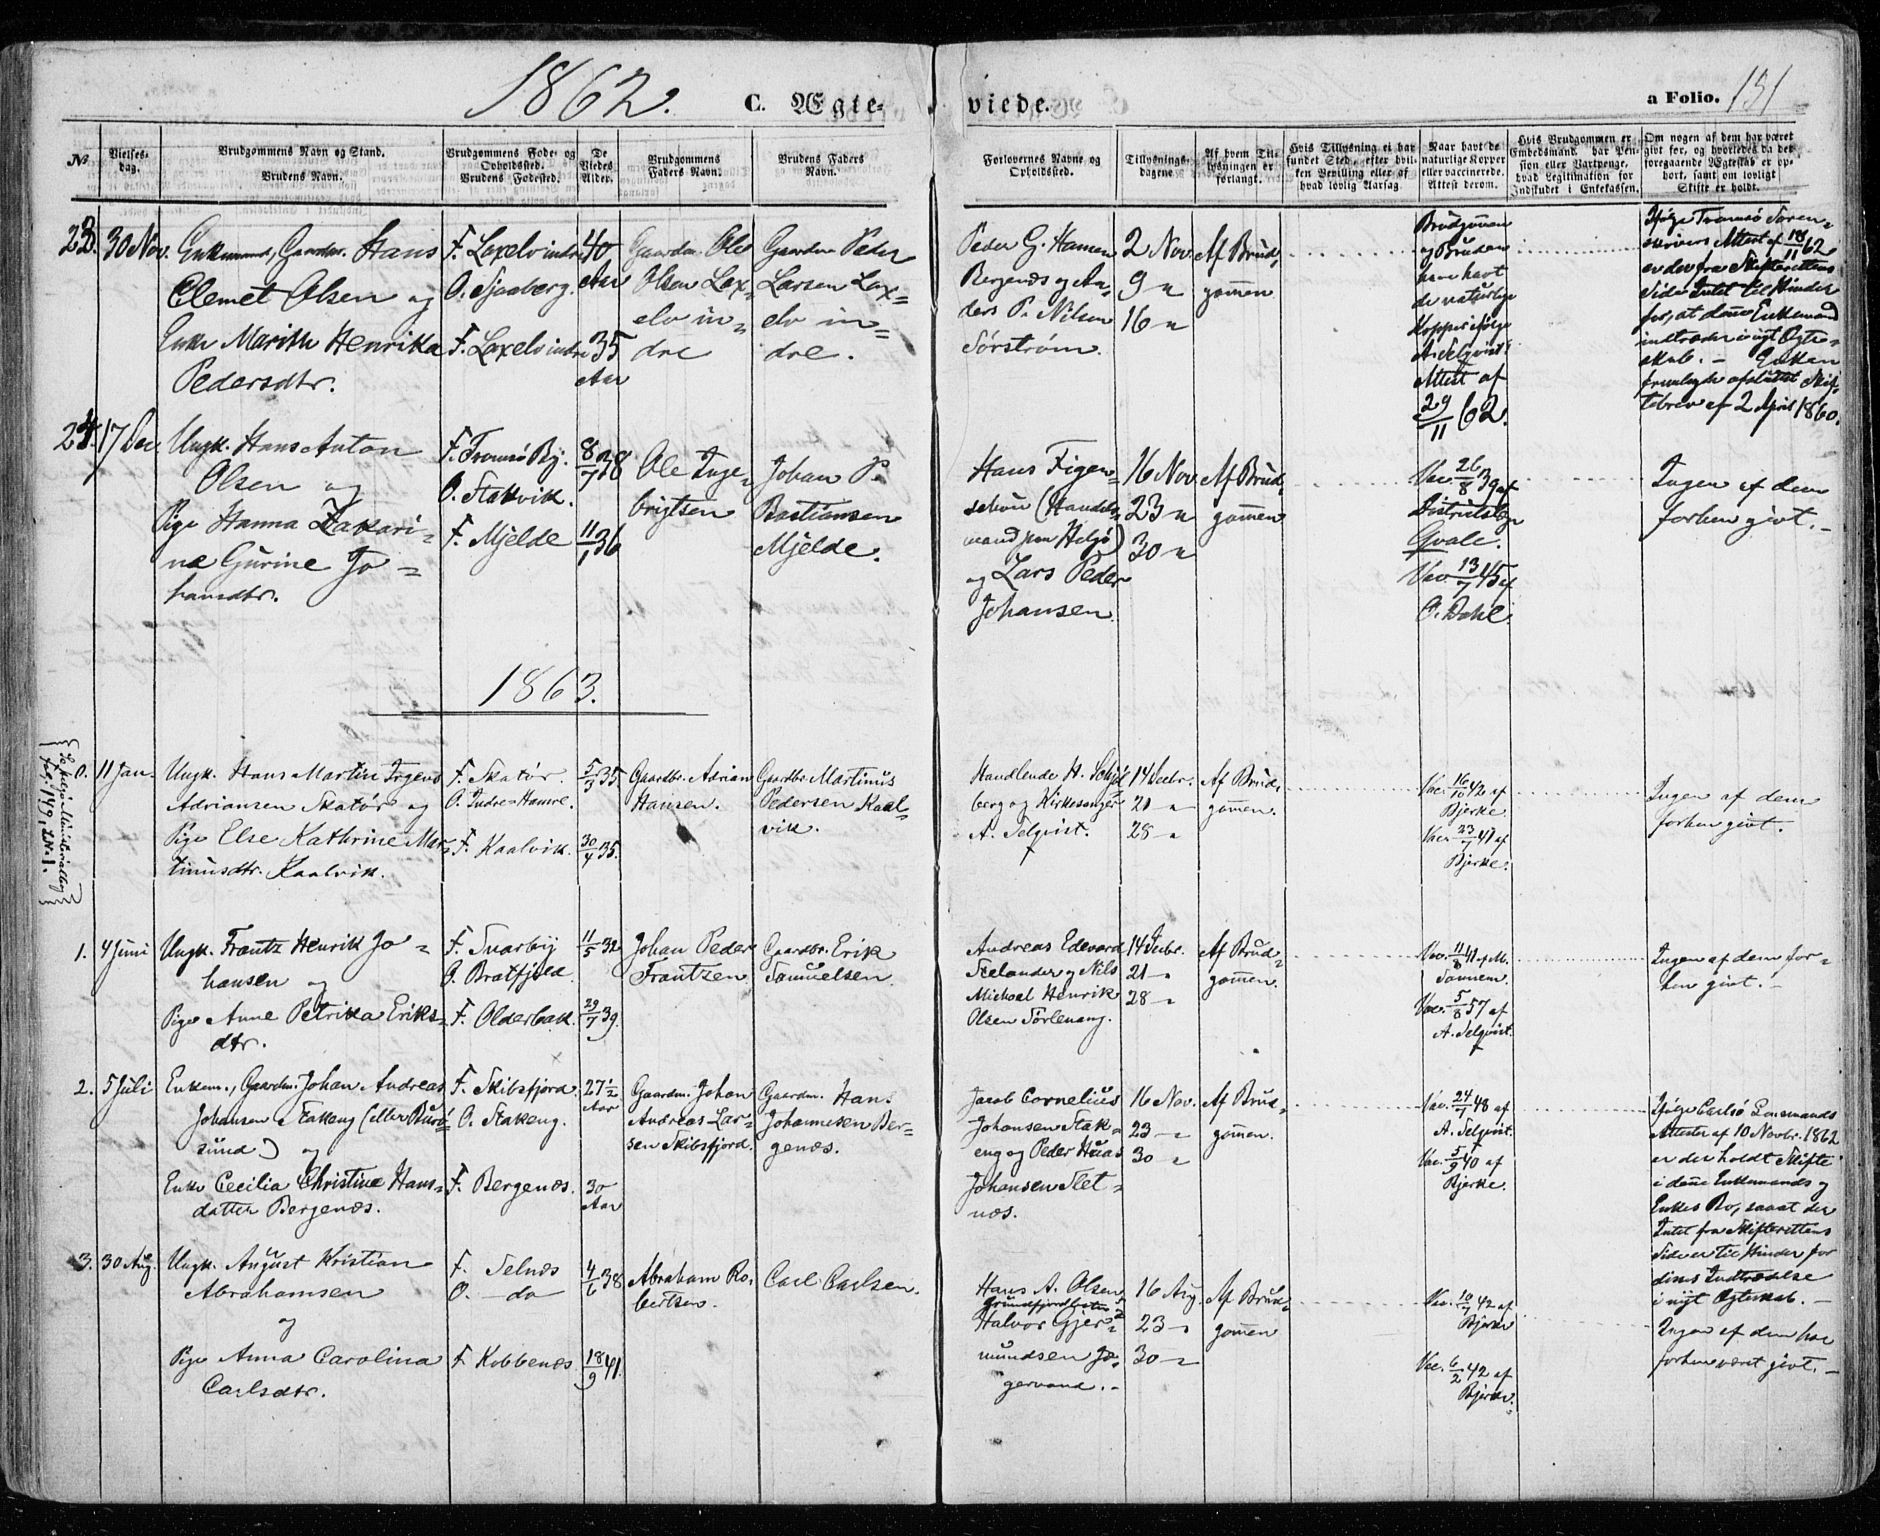 1862.
C. Ægte-
viede.
a Folio. 151
№
Vielses-
dag.
Brudgommens Navn og Stand.
Brudens Navn.
Brudgommens Føde- og
Opholdssted.
Brudens Fødested.
De
Viedes
Alder.
Brudgommens
Faders Navn.
Brudens Faders
Navn.
Forlovernes Navne og
Opholdssted.
Tillysnings-
dagene.
Af hvem Til-
lysningen er
forlangt.
Hvis Tillysning ei har
fundet Sted, efter hvil-
ken Bevilling eller af
hvad lovlig Aarsag.
Naar havt de
naturlige Kopper
eller vaccinerede.
Attest derom.
Hvis Brudgommen er
Embedsmand, har Pen-
sion eller Vartpenge,
hvad Legitimation for
Indskudet i Enkekassen.
Om nogen af dem har været
gift før, og hvorledes da det
foregaaende Ægteskab er op-
hørt, samt om lovligt
Skifte er holdt.
23. 30 Nov.
Enkemand, Gaardm. Hans
Clemet Olsen og
Enke Marithe Henrika
Pedersdtr.
F. Laxelv indre
O. Sjaaberg.
F. Laxelv indre
40
Aar
35
Aar
Gaardm. Ole
Olsen Lax-
elv in-
dre
Gaardm Peder
Larsen Lax-
elv in-
dre.
Peder G. Hansen
Bergenæs og An-
ders P. Nilsen
Sørstrøm.
2 Nov.
9 "
16 "
Af Brud-
gommen
Brudgommen
og Bruden
have havt
de naturlige
Kopper ifølge
A. Selqvist
Attest af
29/11 62.
Ifølge Tromsø Soren-
skrivers Attest af 18/11 62
er der fra Skifterettens
Side Intet til Hinder
for, at denne Enkemand
indtræder i nyt Ægte-
skab. — Enken
fremlagde afsluttet Skif-
tebrev af 2 April 1860.
24. 17 Dec.
Ungk. Hans Anton
Olsen og
Pige Hanna Zakari-
na Gurine Jo-
hansdtr.
F. Tromsø By.
O. Stakvik.
F. Mjelde
8/7 38
11/1 36
Ole Inge-
brigtsen
Johan P.
Bastiansen
Mjelde.
Hans Figen-
schou (Handels-
mand paa Helgø)
og Lars Peder
Johansen
16 Nov.
23 "
30 "
Af Brud-
gommen
Vac. 26/8 39 af
Districtslæge
Qvale.
Vac. 13/7 45 af
O. Dahl.
Ingen af dem
forhen givt. —
1863.
Se Kopi Ministerialbog
fol. 149, LN. 1.
0. 11 Jan.
Ungk. Hans Martin Irgens
Adriansen Skatør og
Pige Else Kathrine Mar-
tinusdtr. Kaalvik.
F. Skatør.
O. Indre-Hamre.
F. Kaalvik.
5/3 35
30/4 35.
Gaardbr. Adrian
Hansen.
Gaardbr Martinus
Pedersen Kaal-
vik.
Handlende H. Schjøl
berg og Kirkesanger
A. Selqvist.
14 Decbr.
21 "
28 "
Af Brud-
gommen.
Vac. 16/10 42 af
Bjerke.
Vac. 23/7 41 af
Bjerke.
Ingen af dem
forhen givt.
1. 4 Juni
Ungk. Frantz Henrik Jo-
hansen og
Pige Anne Petrika Eriks-
dtr.
F. Svarby
O. Bratfjeld.
F. Olderbak.
11/5 32
29/7 39.
Johan Peder
Frantzen.
Gaardbr. Erik
Samuelsen.
Andreas Edevard
Stelander og Nils
Michael Henrik
Olsen Sørlenang.
14 Febr.
21 "
28 "
Af Brud-
gommen.
Vac. 11/8 41 af M.
Sannem.
Vac. 5/8 57 af
A. Selqvist.
Ingen af dem for-
hen givt. —
2. 5 Juli
Enkem., Gaardm. Johan Andreas
Johansen Stakeng (eller Burø-
sund) og
Enke Cecilia Christine Hans-
datter Bergenæs.
F. Skibsfjord
O. Stakeng.
F. Bergenæs.
27 1/2
Aar
30
Aar
Gaardm. Johan
Andreas Lar-
sen Skibsfjord.
Gaardm. Hans
Johannesen Ber-
genæs.
Jacob Cornelius
Johansen Stak-
eng og Peder Huas
Johansen Slet-
næs.
16 Nov.
23 "
30 "
Af Brud-
gommen.
Vac. 24/7 48 af
A. Selqvist.
Vac. 5/9 40 af
Bjerke.
Ifølge Carlsø Lensmands
Attester af 10 Novbr. 1862
er der holdt Skifte
i denne Enkemands og
Enkes Bo, saaat der
Intet fra Skifterettens
Side er til Hinder for
deres Indtrædelse
i nyt Ægteskab. —
3. 30 Aug.
Ungk. August Kristian
Abrahamsen
og
Pige Anna Carolina
Carlsdtr.
F. Selnæs
O. — do
F. Kobbenæs
4/6 38
18/9 41.
Abraham Ro-
bertsen.
Carl Carlsen.
Hans A. Olsen
Grundfjordbotn &
Halvor Gjer-
mundsen Jæ-
gervand. —
16 Aug.
23 "
30 "
Af Brud-
gommen
Vac. 10/7 42 af
Bjerke
Vac. 6/2 42 af
Bjerke.
Ingen af dem har
forhen været givt. —